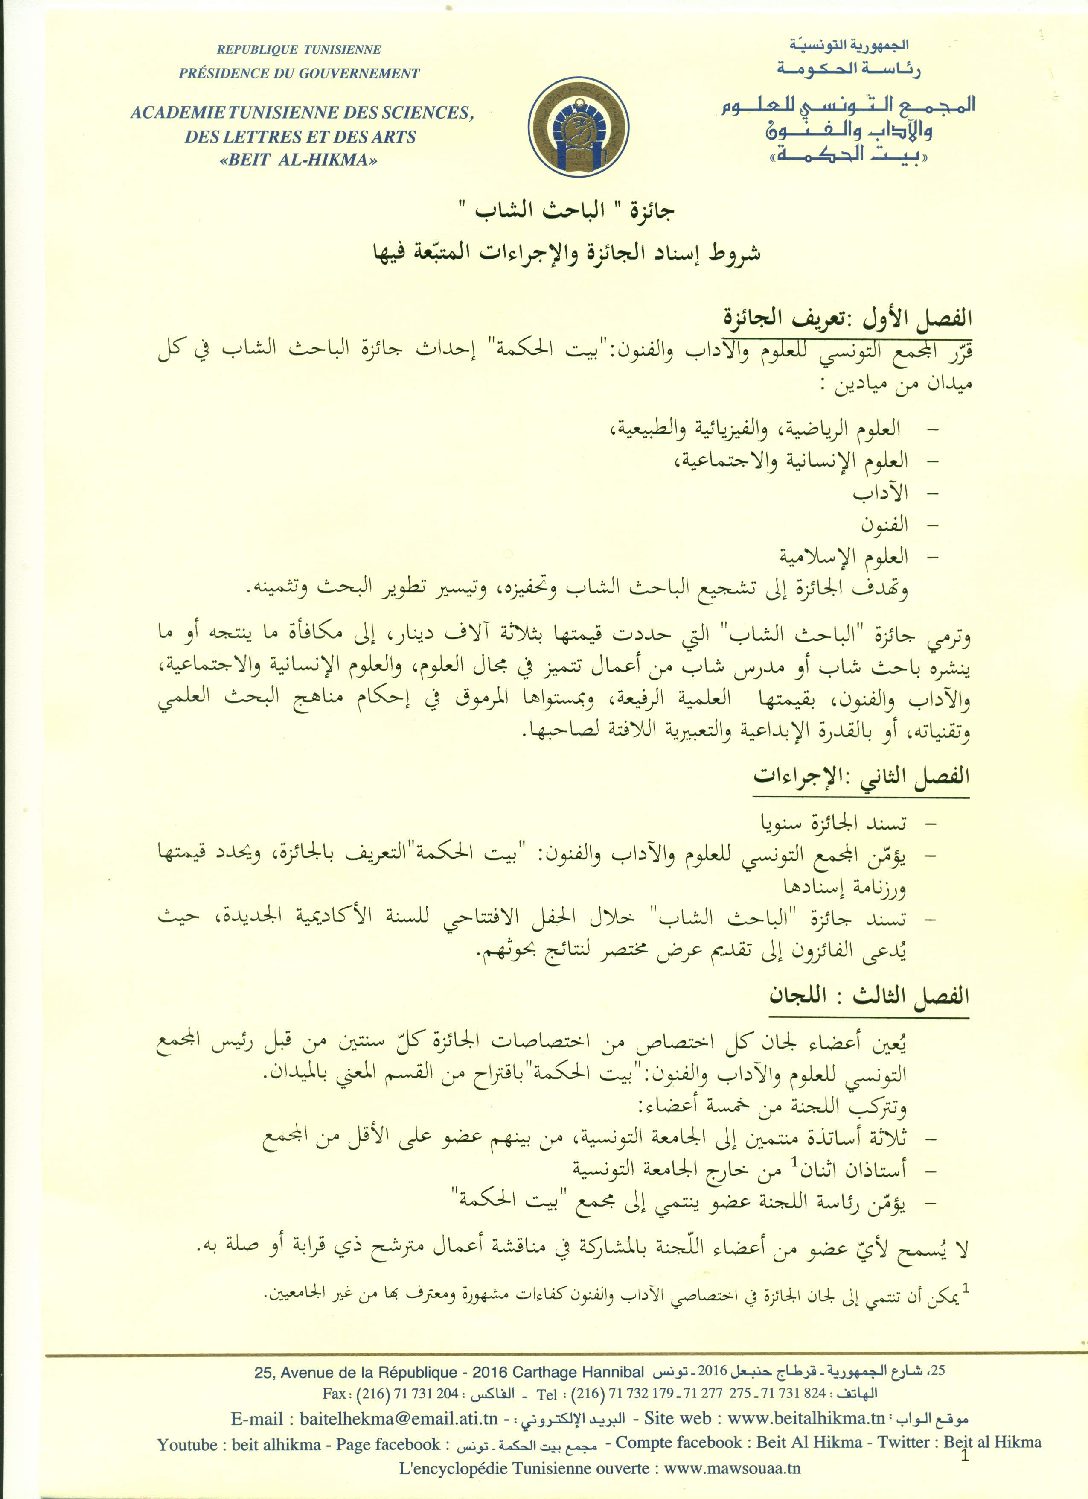 REPUBLIQUE TUNISIENNE
PRÉSIDENCE DU GOUVERNEMENT
ACADEMIE TUNISIENNE DES SCIENCES,
DES LETTRES ET DES ARTS
«BEIT AL-HIKMA»
الجمهورية التونسيّة
رئاسة الحكومة
المجمع التونسي للعلوم
والآداب والفنون
«بيت الحكمة»
جائزة " الباحث الشاب "
شروط إسناد الجائزة والإجراءات المتبّعة فيها
الفصل الأول :تعريف الجائزة
قرّر المجمع التونسي للعلوم والآداب والفنون:"بيت الحكمة" إحداث جائزة الباحث الشاب في كل
ميدان من ميادين :
– العلوم الرياضية، والفيزيائية والطبيعية،
– العلوم الإنسانية والاجتماعية،
– الآداب
– الفنون
– العلوم الإسلامية
وتهدف الجائزة إلى تشجيع الباحث الشاب وتحفيزه، وتيسير تطوير البحث وتثمينه.
وترمي جائزة "الباحث الشاب" التي حددت قيمتها بثلاثة آلاف دينار، إلى مكافأة ما ينتجه أو ما
ينشره باحث شاب أو مدرس شاب من أعمال تتميز في مجال العلوم، والعلوم الإنسانية والاجتماعية،
والآداب والفنون، بقيمتها العلمية الرفيعة، وبمستواها المرموق في إحكام مناهج البحث العلمي
وتقنياته، أو بالقدرة الإبداعية والتعبيرية اللافتة لصاحبها.
الفصل الثاني :الإجراءات
– تسند الجائزة سنويا
– يؤمّن المجمع التونسي للعلوم والآداب والفنون: "بيت الحكمة"التعريف بالجائزة، ويحدد قيمتها
ورزنامة إسنادها
– تسند جائزة "الباحث الشاب" خلال الحفل الافتتاحي للسنة الأكاديمية الجديدة، حيث
يُدعى الفائزون إلى تقديم عرض مختصر لنتائج بحوثهم.
الفصل الثالث : اللجان
يُعين أعضاء لجان كل اختصاص من اختصاصات الجائزة كلّ سنتين من قبل رئيس المجمع
التونسي للعلوم والآداب والفنون:"بيت الحكمة"باقتراح من القسم المعني بالميدان.
وتتركب اللجنة من خمسة أعضاء:
– ثلاثة أساتذة منتمين إلى الجامعة التونسية، من بينهم عضو على الأقل من المجمع
– أستاذان اثنان1 من خارج الجامعة التونسية
– يؤمّن رئاسة اللجنة عضو ينتمي إلى مجمع "بيت الحكمة"
لا يُسمح لأيّ عضو من أعضاء اللّجنة بالمشاركة في مناقشة أعمال مترشح ذي قرابة أو صلة به.
1يمكن أن تنتمي إلى لجان الجائزة في اختصاصي الآداب والفنون كفاءات مشهورة ومعترف بها من غير الجامعيين.
25, Avenue de la République - 2016 Carthage Hannibal 25، شارع الجمهورية ـ قرطاج حنبعل 2016 ـ تونس
Fax: (216) 71 731 204 : الفاكس - Tel : (216) 71 732 179 - 71 277 275 - 71 731 824 : الهاتف
E-mail : baitelhekma@email.ati.tn - : البريد الإلكتروني - Site web : www.beitalhikma.tn : موقع الواب
Youtube : beit alhikma - Page facebook : مجمع بيت الحكمة ـ تونس - Compte facebook : Beit Al Hikma - Twitter : Beit al Hikma
1
L'encyclopédie Tunisienne ouverte : www.mawsouaa.tn